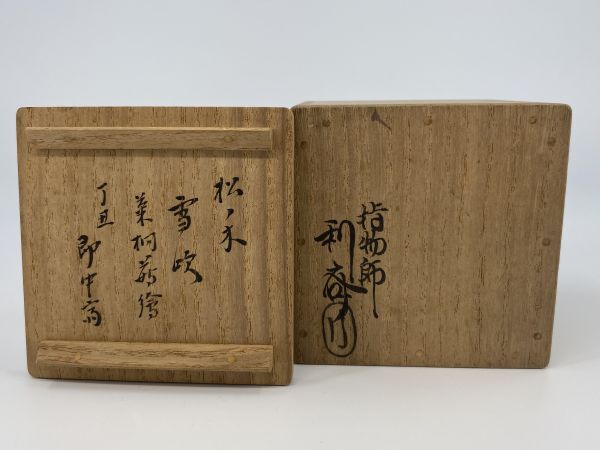 松ノ木
雪吹
菊桐蒔繪
丁丑
即中斎
指物師
利斎